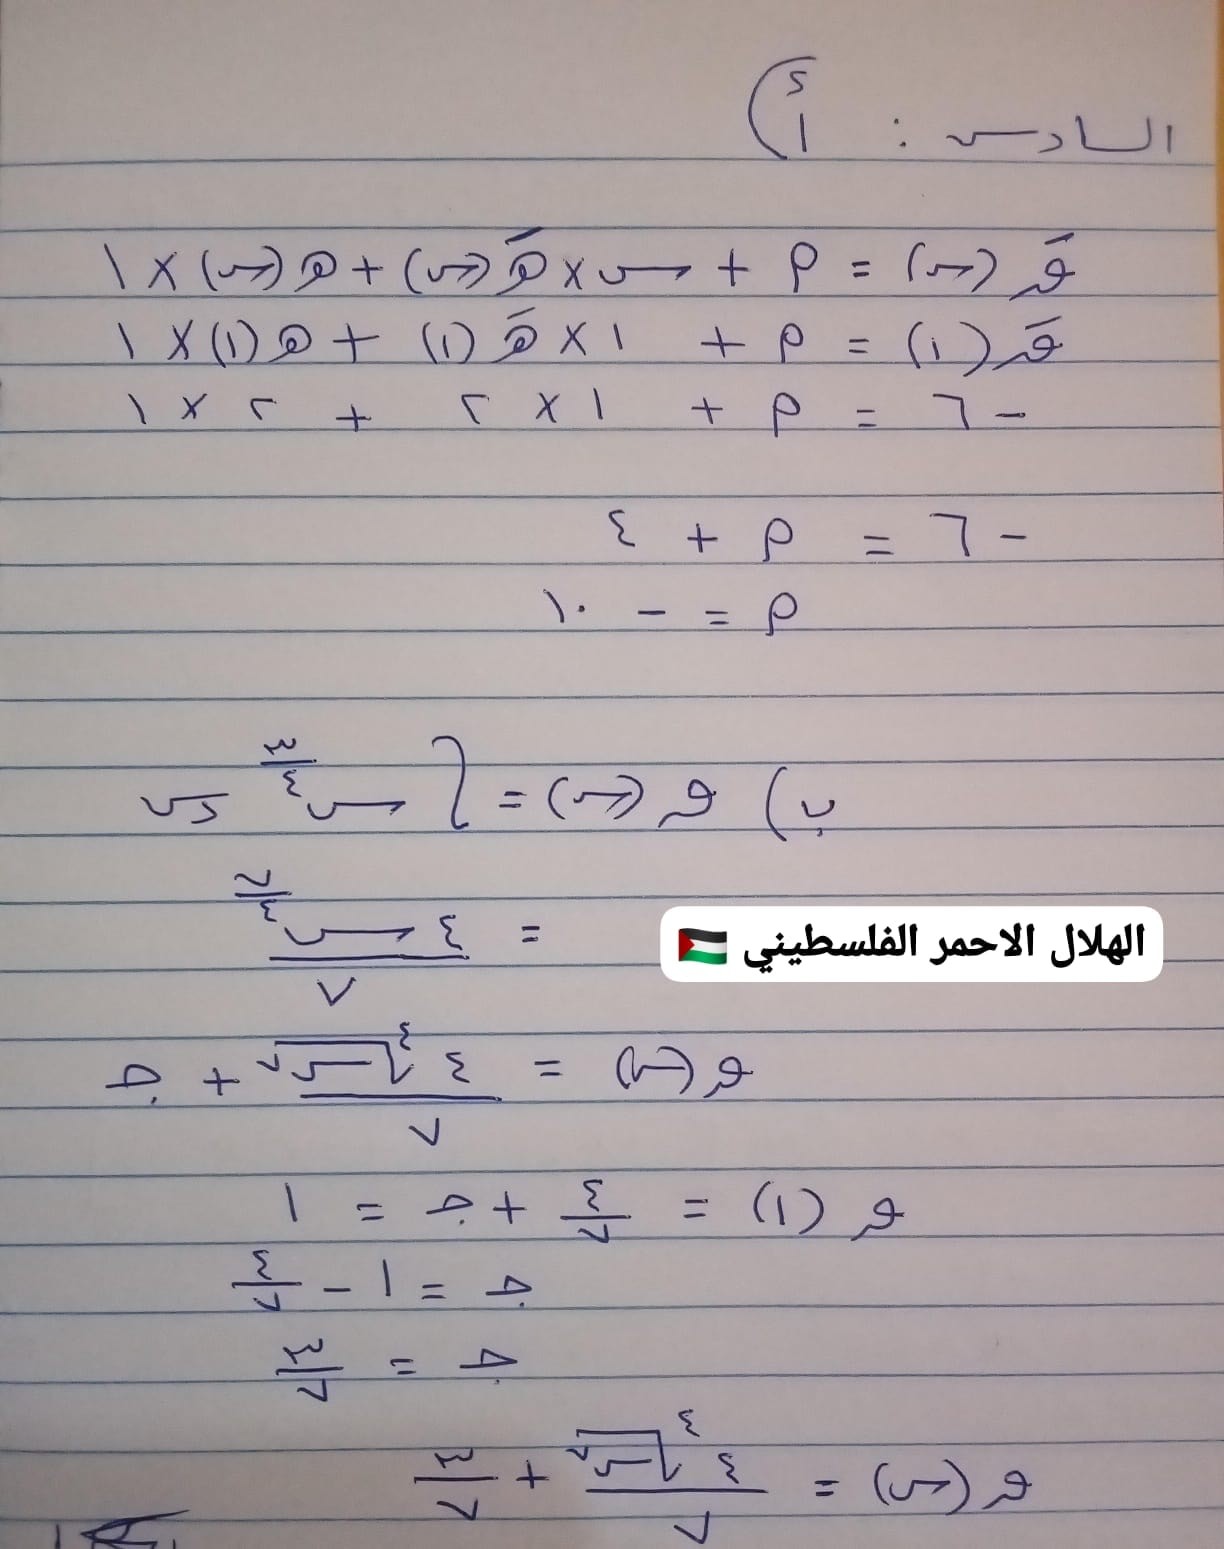 السادس : أ)
قَ(س) = م + س × هَ(س) + ه(س) × ١
قَ(١) = م + ١ × هَ(١) + ه(١) × ١
- ٦ = م + ١ × ٢ + ٢ × ١
- ٦ = م + ٤
م = - ١٠
ب) ق(س) = ∫ س^(٣/٤) ءس
= ٤ س^(٧/٤) / ٧
الهلال الاحمر الفلسطيني 🇵🇸
ق(س) = ٤ ⁴√س^٧ / ٧ + جـ
ق(١) = ٤/٧ + جـ = ١
جـ = ١ - ٤/٧
جـ = ٣/٧
ق(س) = ٤ ⁴√س^٧ / ٧ + ٣/٧